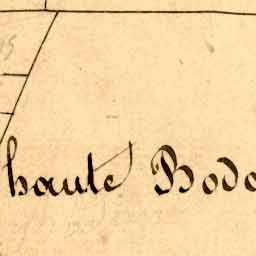 haute Bodo